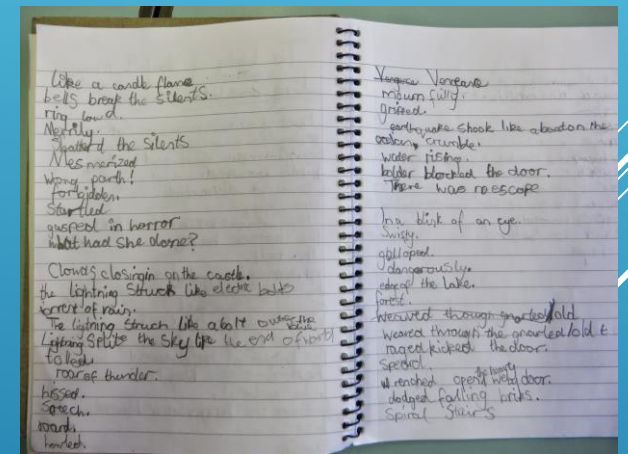 like a candle flame
bells break the silents.
ring loud.
Merrily.
Shatterd the silents
Mesmerized
wrong parth!
forbidden.
Startled
gasped in horror
what had she done?
Clowds closingin on the castle.
the lightning Struck like electric bolts
torrent of rain.
The lightning Struck like a bolt out of the blue
Lightning Splits the Sky like the end of world
tolled.
roar of thunder.
hissed.
Speech.
roard.
howled.
Vengance
mournfully.
gripped.
earthquake shook like abomb on the
crumble.
water rising.
bolder blocked the door.
There was no escape
In a blink of an eye.
Swifty.
gallopod.
dangerously.
edge of the lake.
forest.
weaved through gnarled/old
weaved through the gnarled/old t
raged kicked the door.
Speedd.
wrenched open the heavy door.
dodged falling briks.
Spiral Stairs